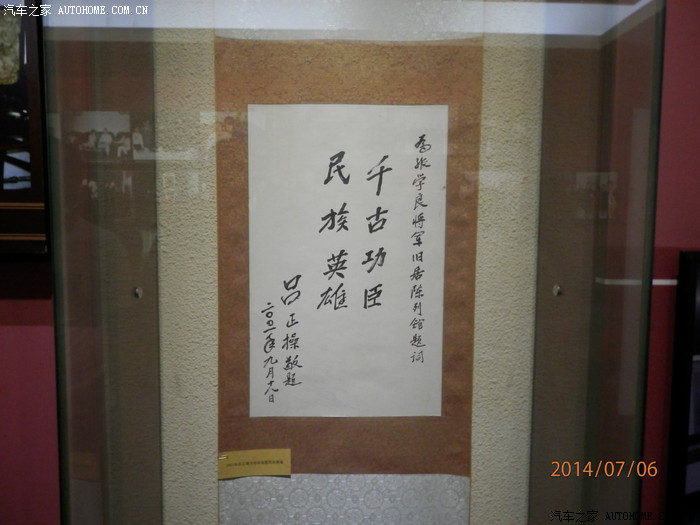 汽车之家 AUTOHOME.COM.CN
为张学良将军旧居陈列馆题词
千古功臣
民族英雄
吕正操敬题
二〇〇一年九月十八日
2014/07/06
汽车之家 AUTOHOME.COM.CN